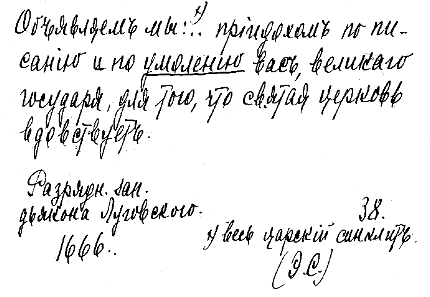 Объявляемъ мы!..*) пріидохомъ по пи-
санію и по умоленію васъ, великаго
государя, для того, что святая церковь
вдовствуетъ.
Разрядн. зап.
дьякона Луговского.
1666..
38.
*) весь царскій синклитъ.
(Э.С.)